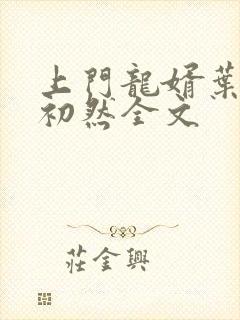 上門龍婿葉
初然全文
莊金興